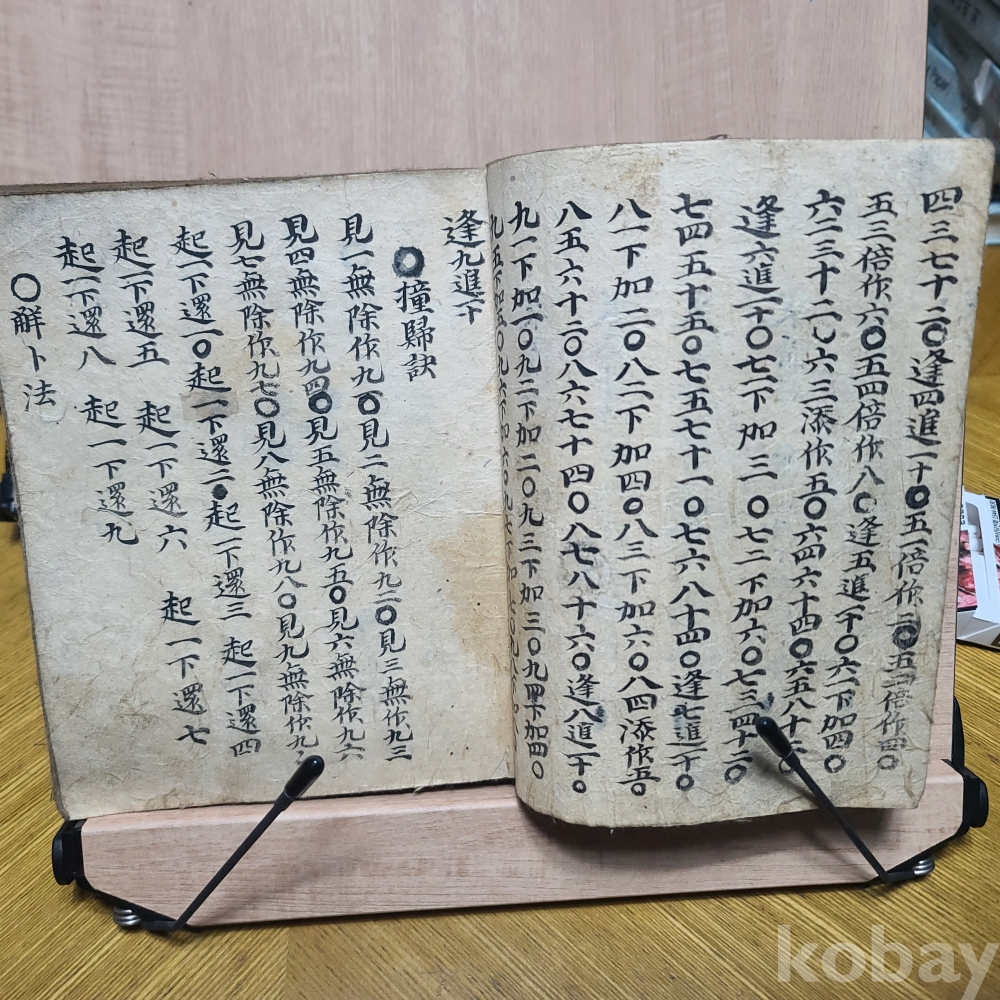 四三七十二〇逢四進一十〇五一倍作二〇五二倍作四〇
五三倍作六〇五四倍作八〇逢五進一十〇六一下加四〇
六二三十二〇六三添作五〇六四六十四〇六五八十二〇
逢六進一十〇七一下加三〇七二下加六〇七三四十二〇
七四五十五〇七五七十一〇七六八十四〇逢七進一十〇
八一下加二〇八二下加四〇八三下加六〇八四添作五〇
八五六十二〇八六七十四〇八七八十六〇逢八進一十〇
九一下加一〇九二下加二〇九三下加三〇九四下加四〇
九五下加五〇九六下加六〇九七下加七〇九八下
逢九進一十
〇撞歸訣
見一無除作九一〇見二無除作九二〇見三無作九三
見四無除作九四〇見五無除作九五〇見六無除作九六
見七無除作九七〇見八無除作九八〇見九無除作九
起一下還一〇起一下還二〇起一下還三 起一下還四
起一下還五 起一下還六 起一下還七
起一下還八 起一下還九
〇解卜法
kobay